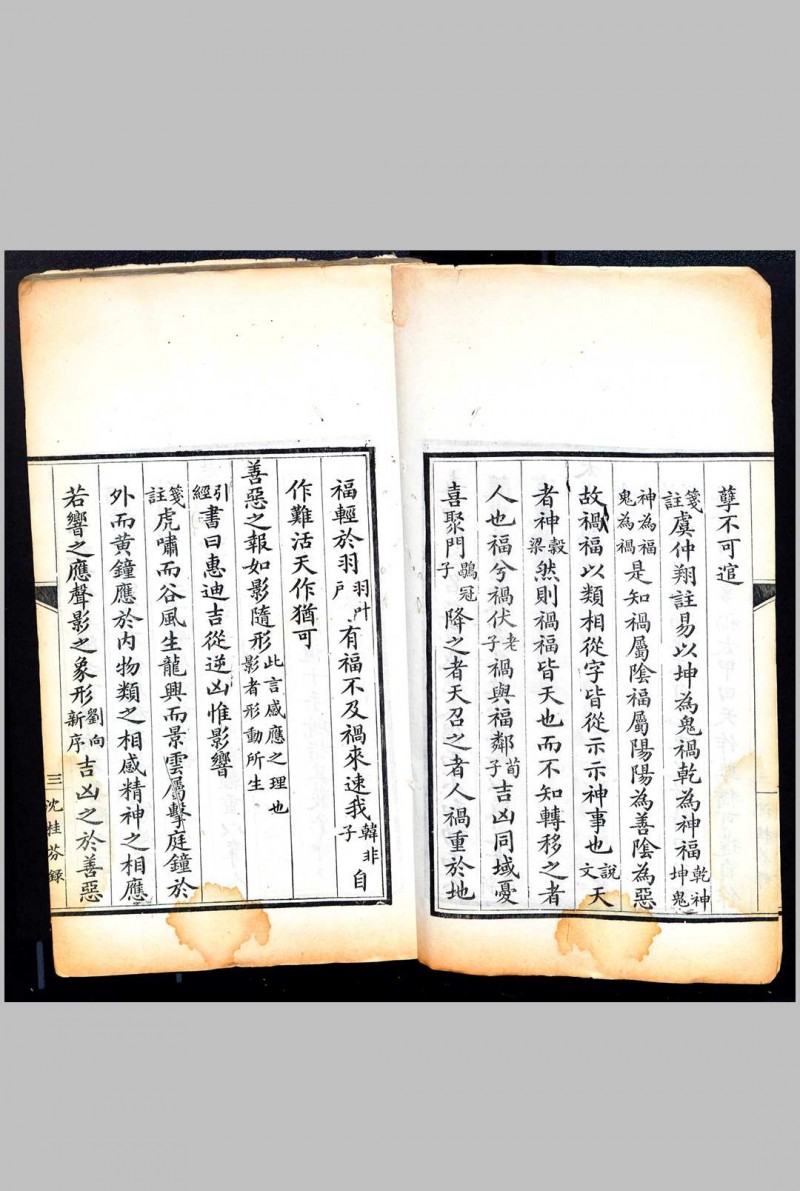 孽不可逭
箋註虞仲翔註易以坤為鬼禍乾為神福乾神坤鬼
神為福鬼為禍是知禍屬陰福屬陽陽為善陰為惡
故禍福以類相從字皆從示示神事也說文天
者神穀梁然則禍福皆天也而不知轉移之者
人也福兮禍伏老子禍與福鄰荀子吉凶同域憂
喜聚門鶡冠子降之者天召之者人禍重於地
福輕於羽有福不及禍來速我韓非子自
作難活天作猶可
善惡之報如影隨形此言感應之理也影者形動所生
引經書曰惠迪吉從逆凶惟影響
箋註虎嘯而谷風生龍興而景雲屬擊庭鐘於
外而黃鐘應於內物類之相感精神之相應
若響之應聲影之象形劉向新序吉凶之於善惡
三 沈桂芬錄